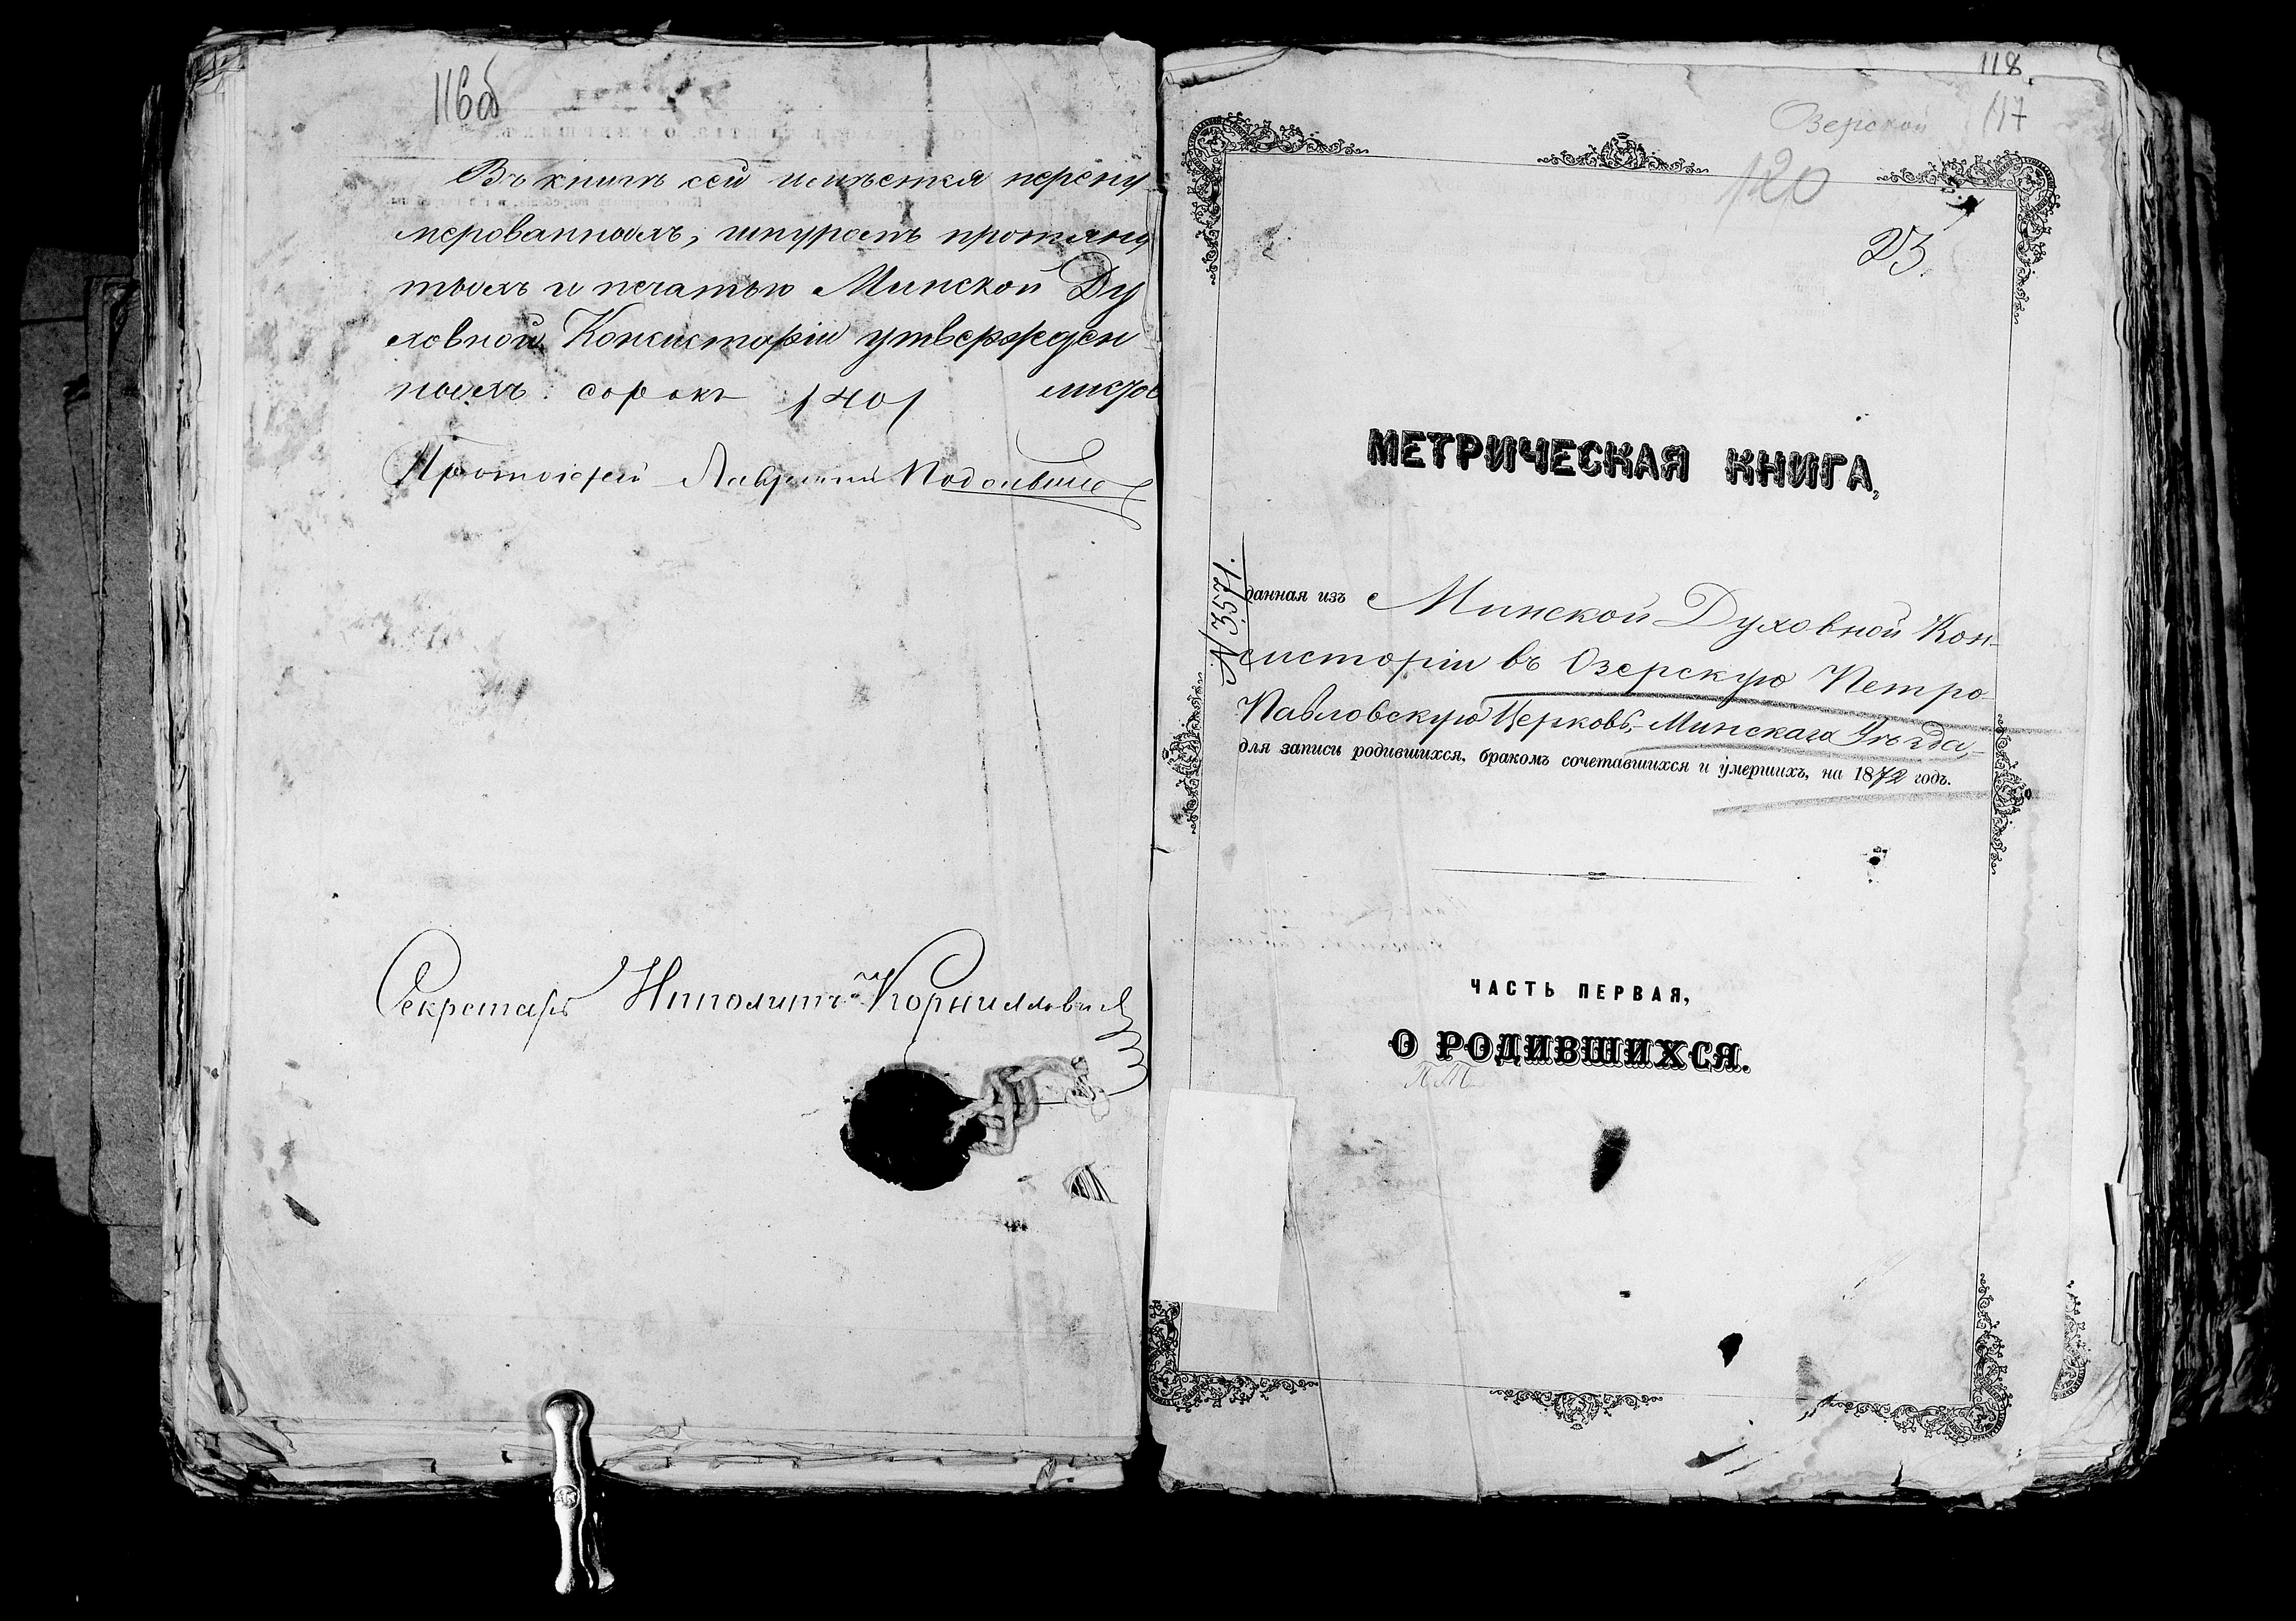 116об
Въ книгѣ сей имѣется перену
мерованныхъ, шнуромъ протяну
тыхъ и печатью Минской Ду
ховной Консисторіи утвержден
ныхъ: сорокъ /40/ листовъ
Протоіерей
Секретарь Ипполитъ Корнилловичъ
118.
Озерской 117
120
23.
МЕТРИЧЕСКАЯ КНИГА,
№ 3571.
данная изъ Минской Духовной Кон-
систоріи въ Озерскую Петро-
Павловскую Церковь, Минскаго Уѣзда,
для записи родившихся, бракомъ сочетавшихся и умершихъ, на 1872 годъ.
ЧАСТЬ ПЕРВАЯ,
О РОДИВШИХСЯ.